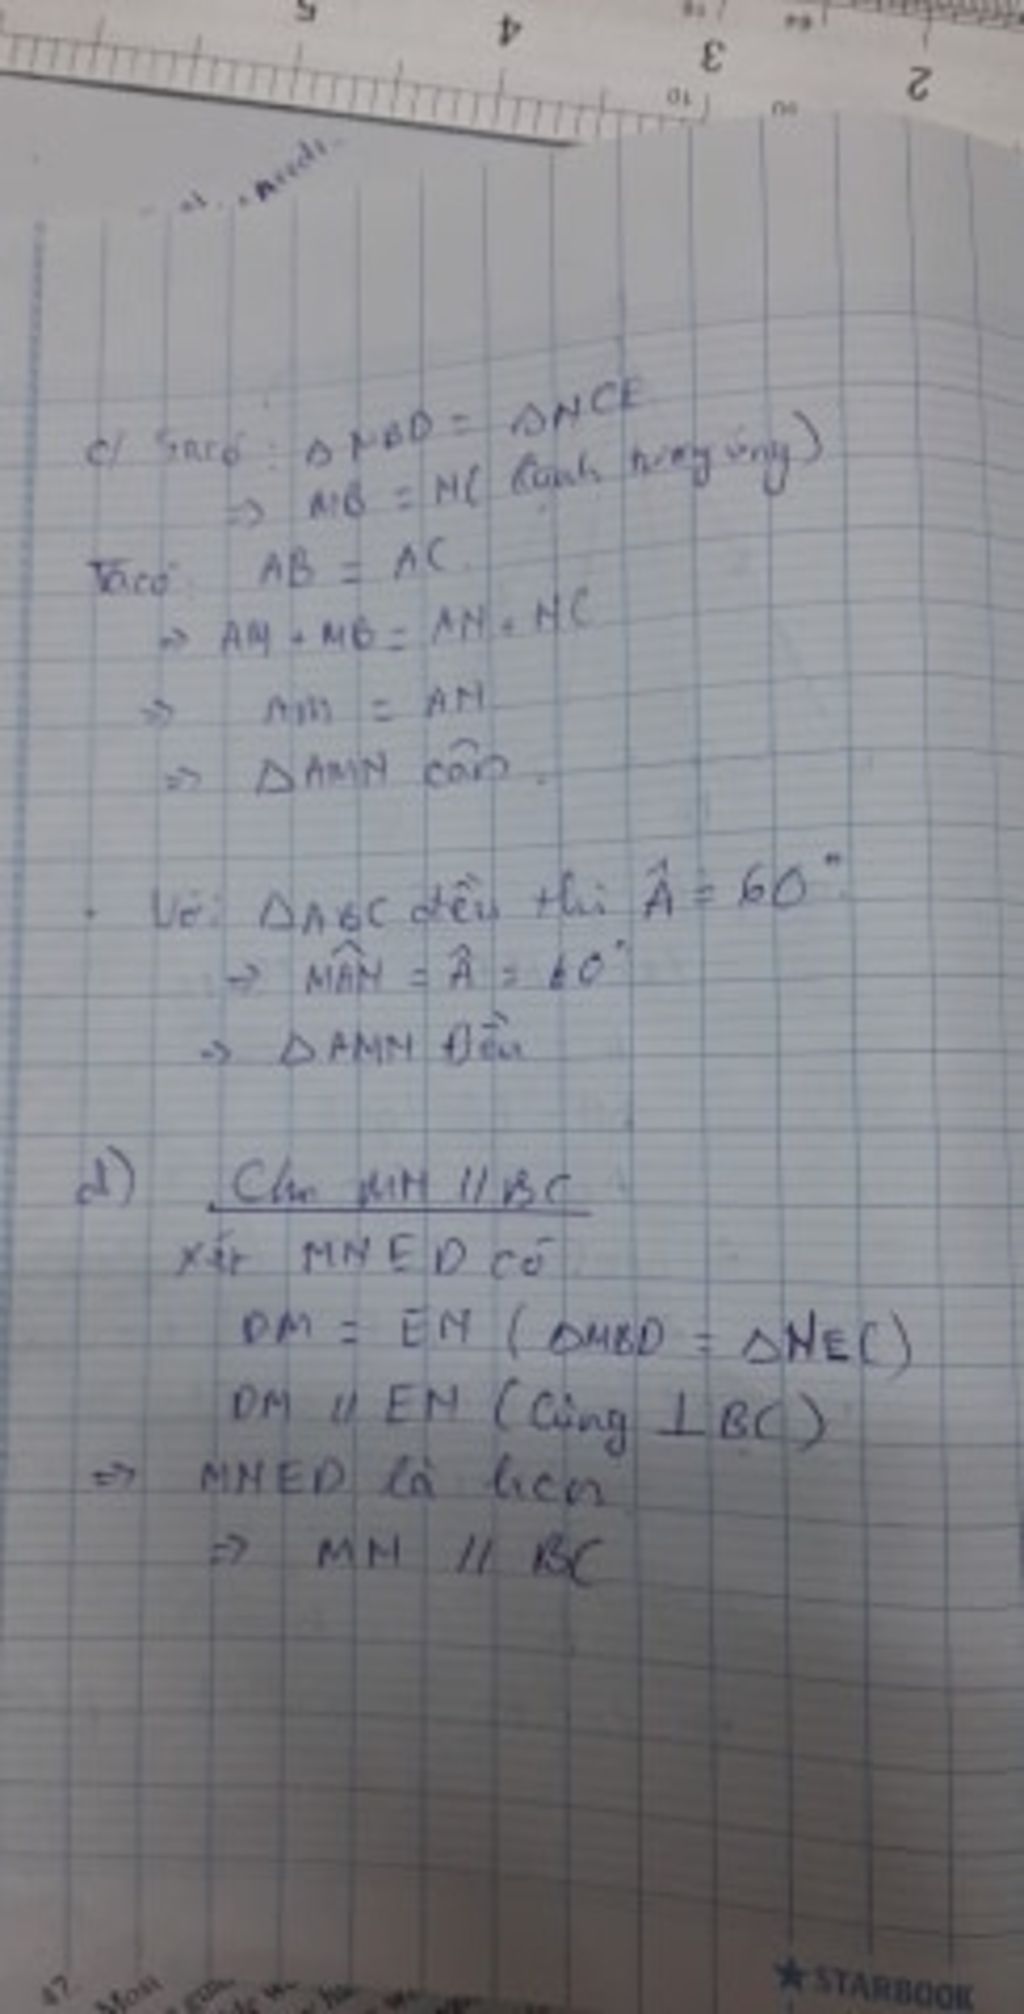 5 4 3 2
c/ Ta có: ΔMBD = ΔNCE
=> MB = NC (cạnh tương ứng)
Ta có AB = AC
=> AM + MB = AN + NC
=> AM = AN
=> ΔAMN cân.
. Vơi ΔABC đều thì Â = 60°
=> MÂN = Â = 60°
=> ΔAMN Đều
d) Cm MN // BC
Xét MNED có
DM = EN (ΔMBD = ΔNEC)
DM // EN (Cùng ⊥ BC)
=> MNED là hcn
=> MN // BC
47
STARBOOK